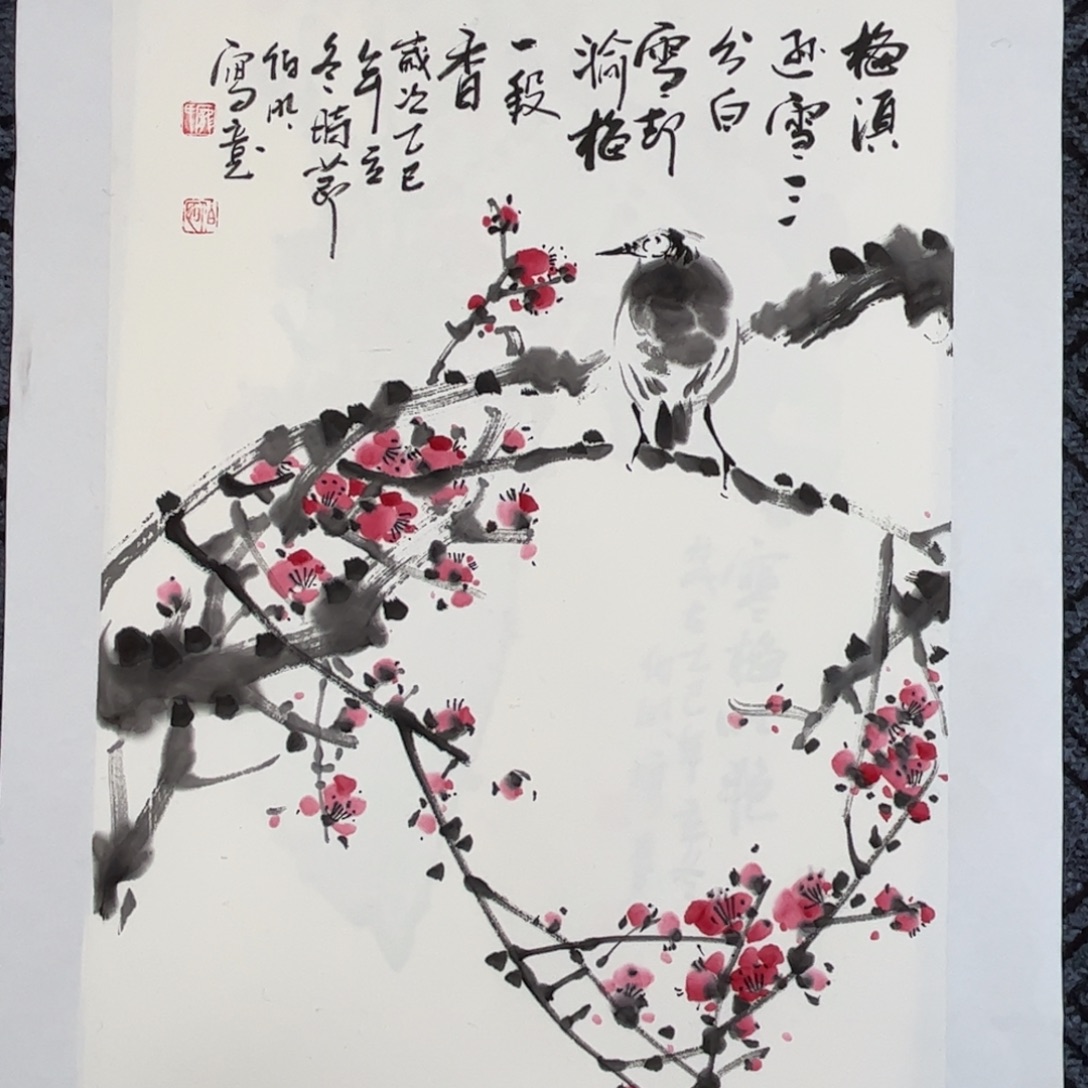 梅須
遜雪三
分白
雪却
输梅
一段
香
歲次乙巳
年立
冬時節
伯
寫意